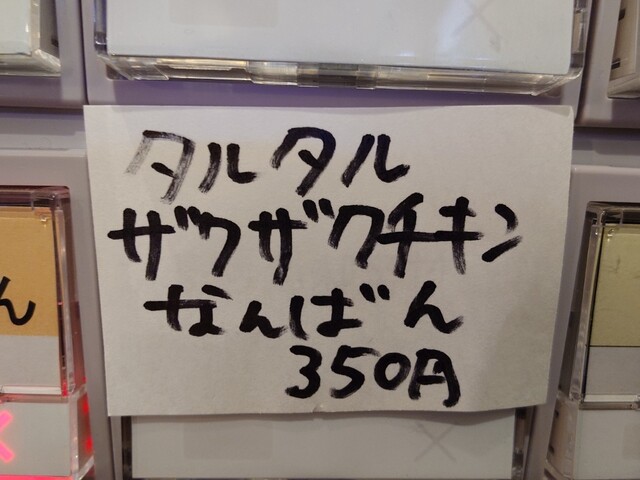 タルタル
ザクザクチキン
なんばん
350円
ん